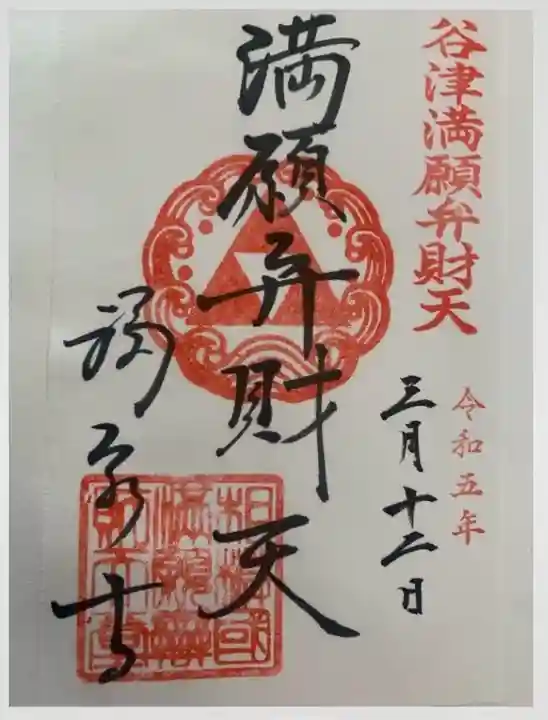 谷津満願弁財天
令和五年
三月十二日
満願弁財天
福泉寺